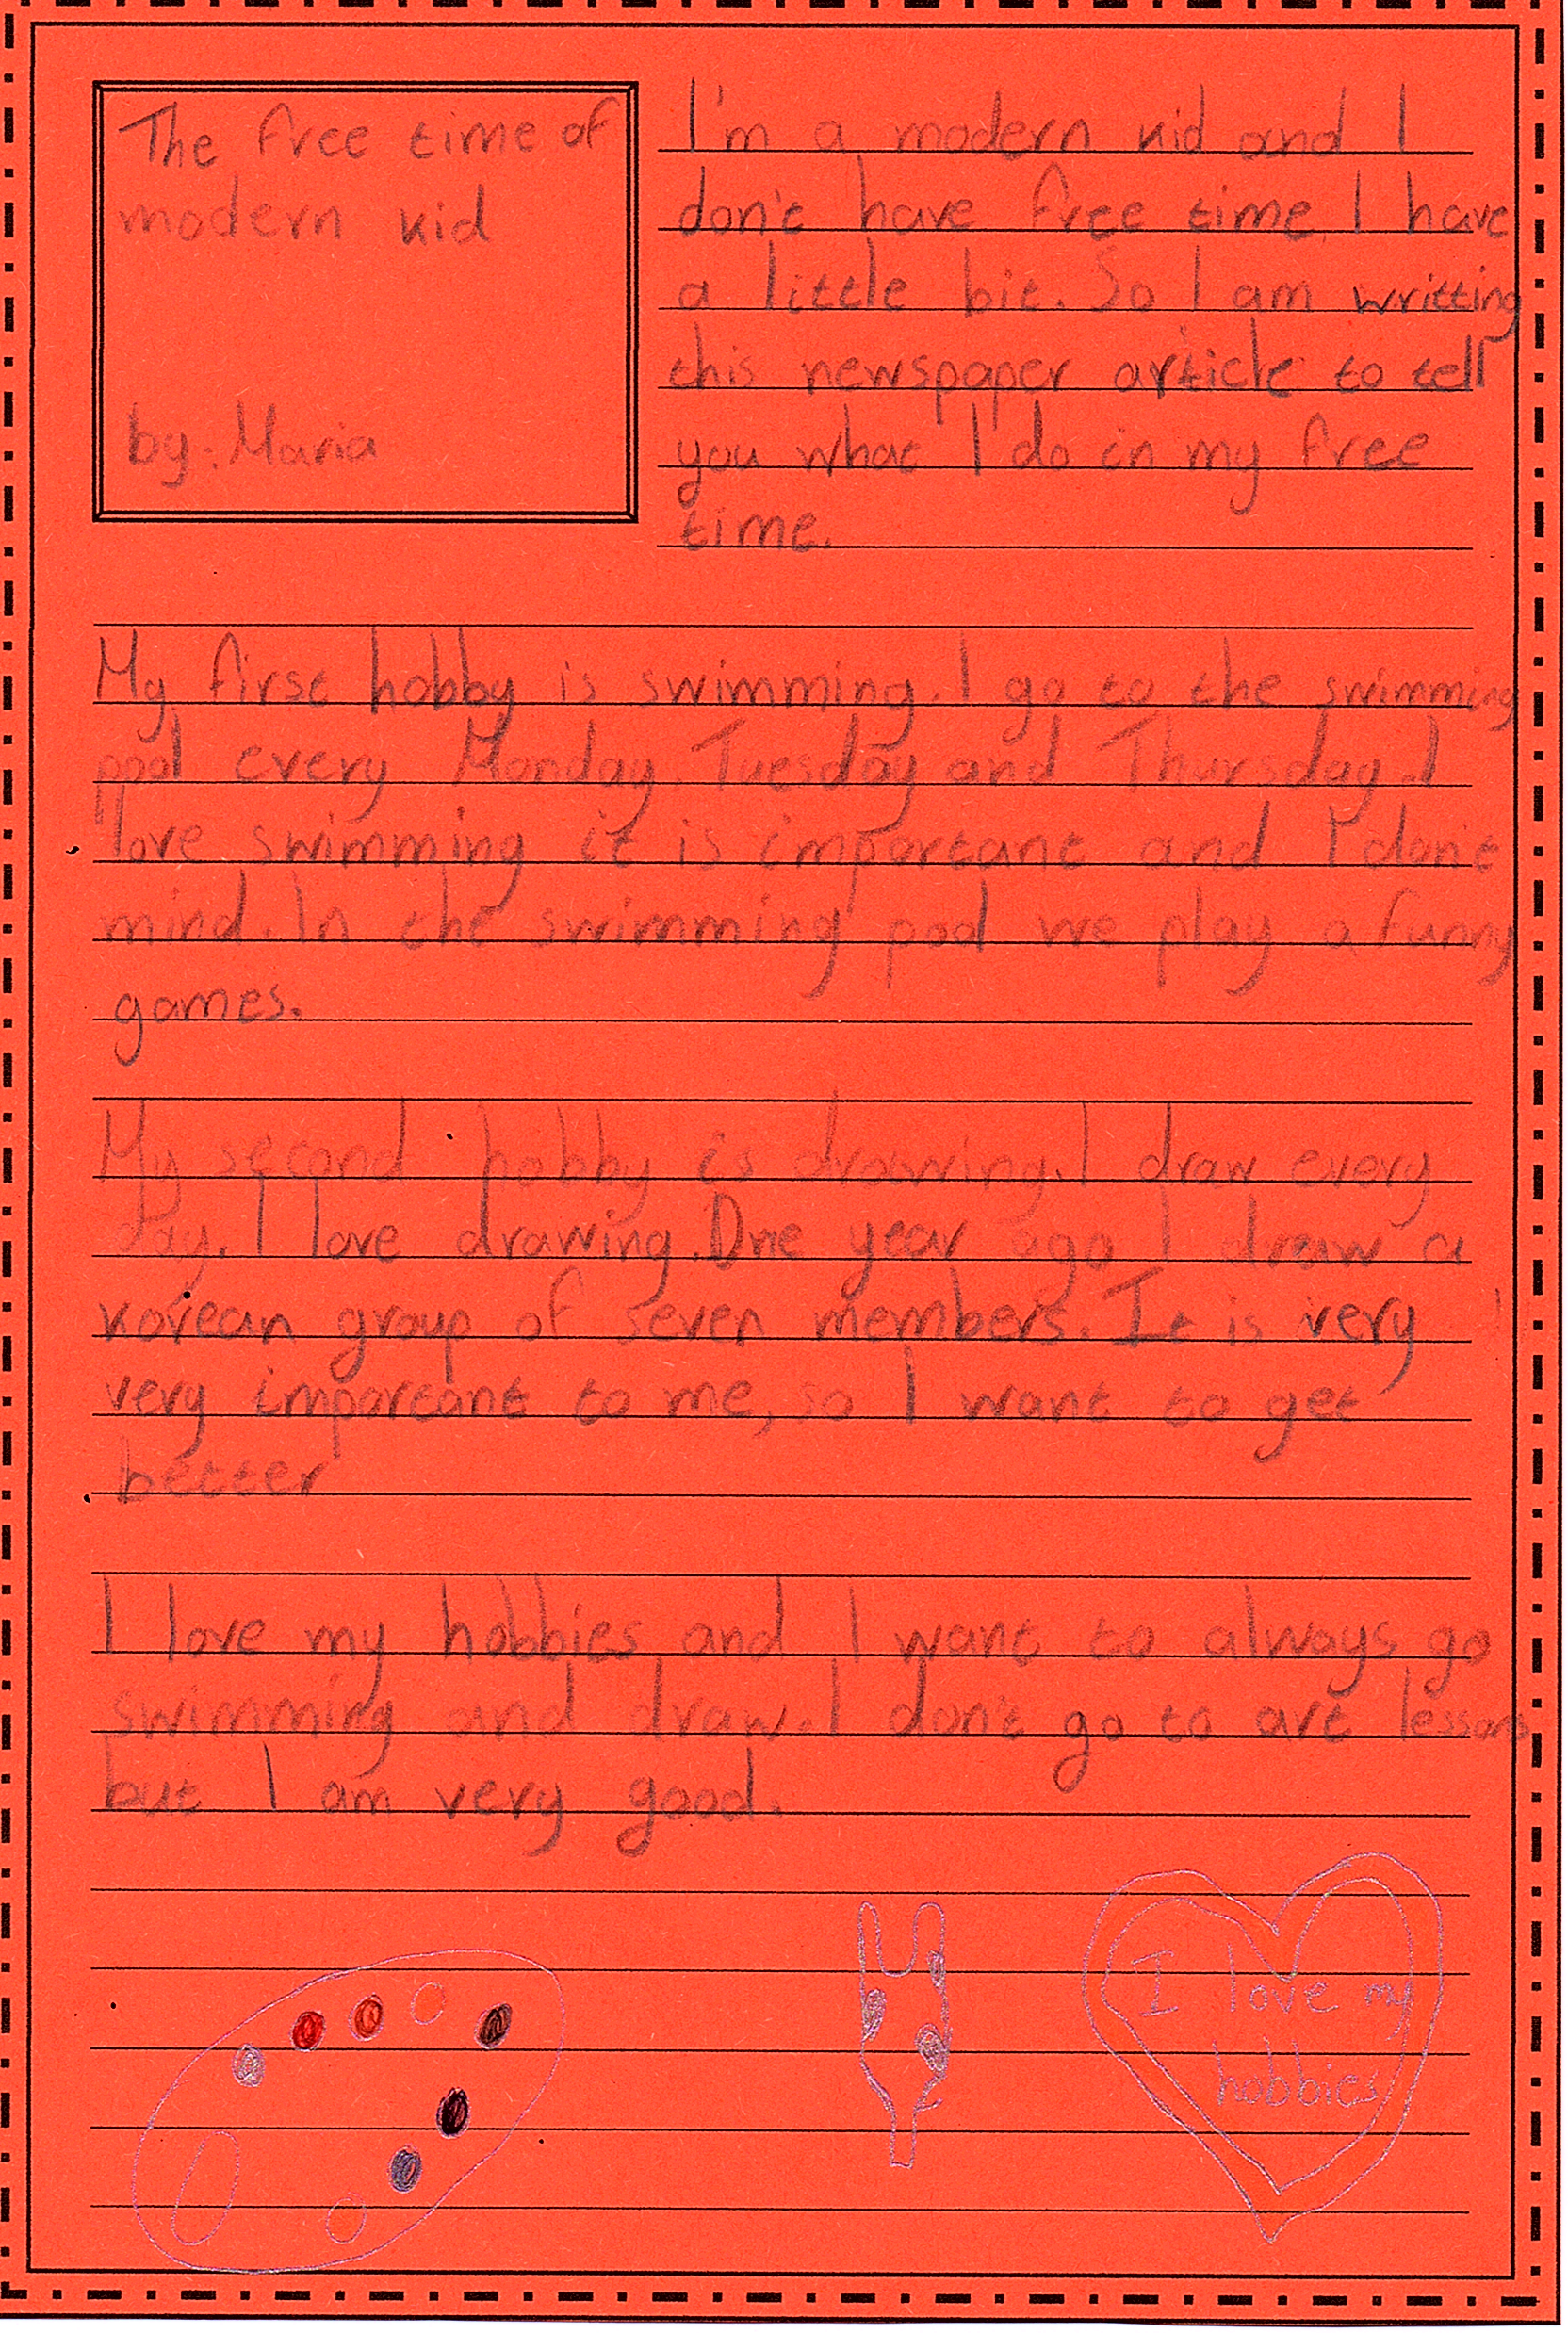 The free time of
modern kid
by: Maria
I'm a modern kid and I
don't have free time, I have
a little bit. So I am writting
this newspaper article to tell
you what I do in my free
time.
My first hobby is swimming. I go to the swimming
pool every Monday, Tuesday and Thursday. I
love swimming it is important and I don't
mind. In the swimming pool we play a funny
games.
My second hobby is drawing. I draw every
day. I love drawing. One year ago I draw a
korean group of seven members. It is very
very important to me, so I want to get
better
I love my hobbies and I want to always go
swimming and draw. I don't go to art lessons
but I am very good.
I love my
hobbies